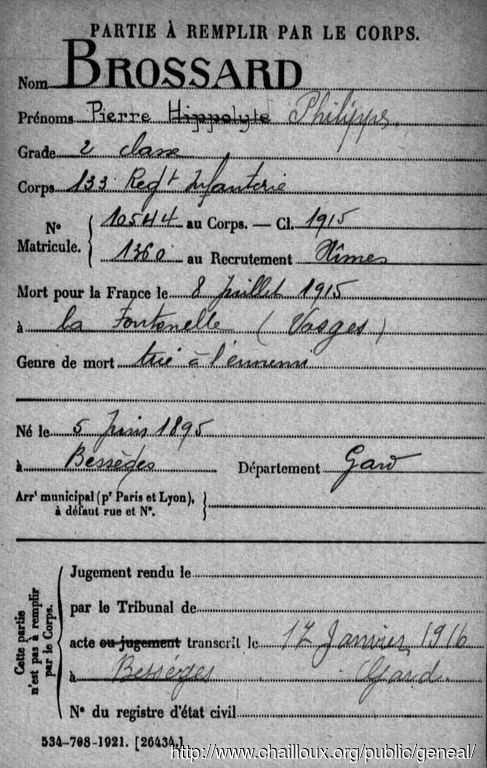 PARTIE À REMPLIR PAR LE CORPS.
Nom BROSSARD
Prénoms Pierre Hippolyte Philippe
Grade 2 classe
Corps 133 Regt Infanterie
N° Matricule. 10544 au Corps. — Cl. 1915
1360 au Recrutement Nîmes
Mort pour la France le 8 Juillet 1915
à La Fontenelle (Vosges)
Genre de mort tué à l'ennemi
Né le 5 Juin 1895
à Bessèges Département Gard
Arrt municipal (pr Paris et Lyon),
à défaut rue et N°.
Cette partie n'est pas à remplir par le Corps.
Jugement rendu le
par le Tribunal de
acte ou jugement transcrit le 17 Janvier 1916
à Bessèges Gard.
N° du registre d'état civil
534-708-1921. [26434.]
http://www.chailloux.org/public/geneal/